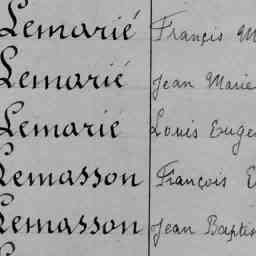 Lemarié Françis M
Lemarié Jean Marie
Lemarie Louis Euge
Lemasson François E
Lemasson Jean Baptis